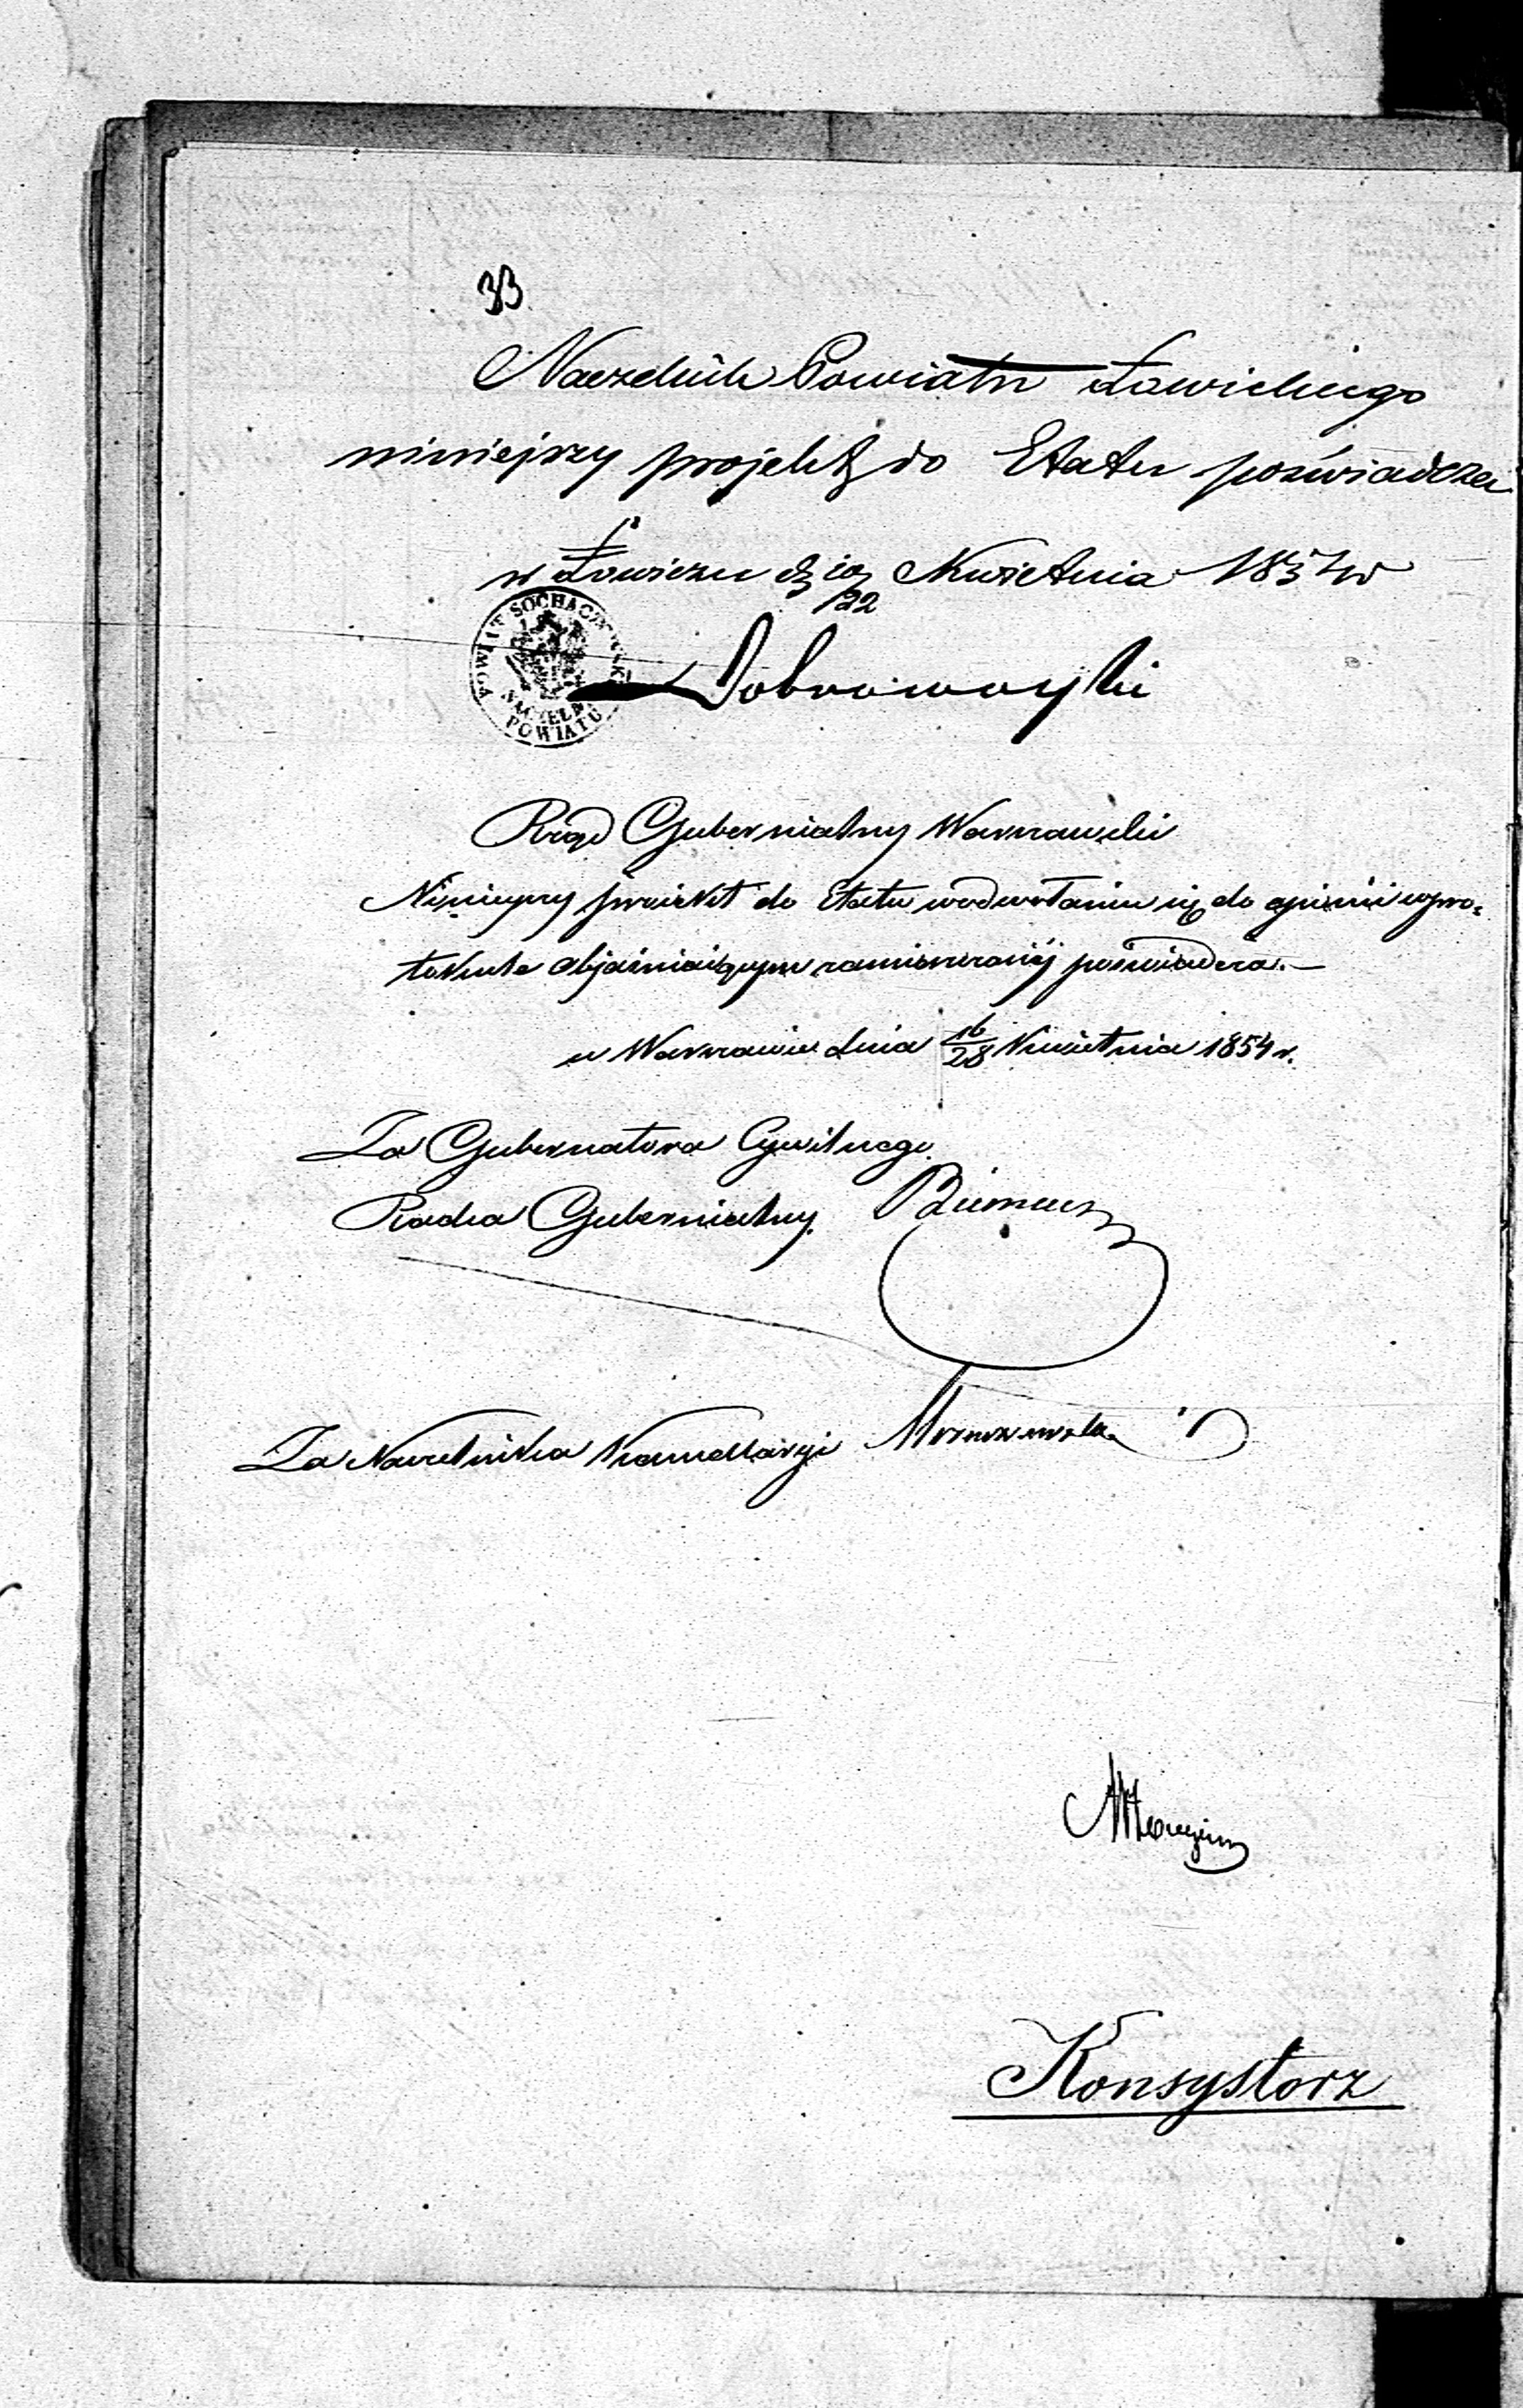 33
Naczelnik Powiatu Łowickiego
niniejszy projekt do Etatu poświadcza
w Łowiczu d 10/22 Kwietnia 1854 r
POWIAT SOCHACZEWSKI
NACZELNIK
POWIATU
Dobrowolski
Rząd Gubernialny Warszawski
Niniejszy projekt do Etatu w odwołaniu się do opinii w pro-
tokule objaśniającym zamieszczonéj poświadcza.—
w Warszawie dnia 16/28 Kwietnia 1854 r.
Za Gubernatora Cywilnego
Radca Gubernialny
Za Naczelnika Kancellaryi
Konsystorz